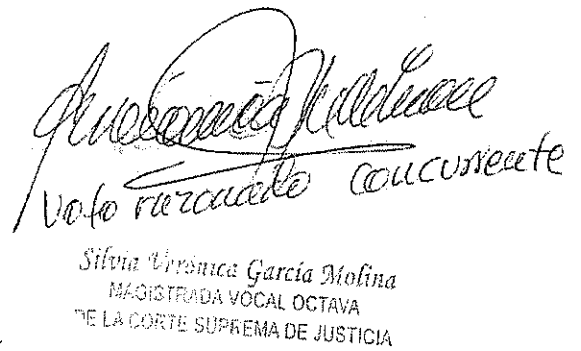 Voto razonado concurrente
Silvia Verónica García Molina
MAGISTRADA VOCAL OCTAVA
DE LA CORTE SUPREMA DE JUSTICIA